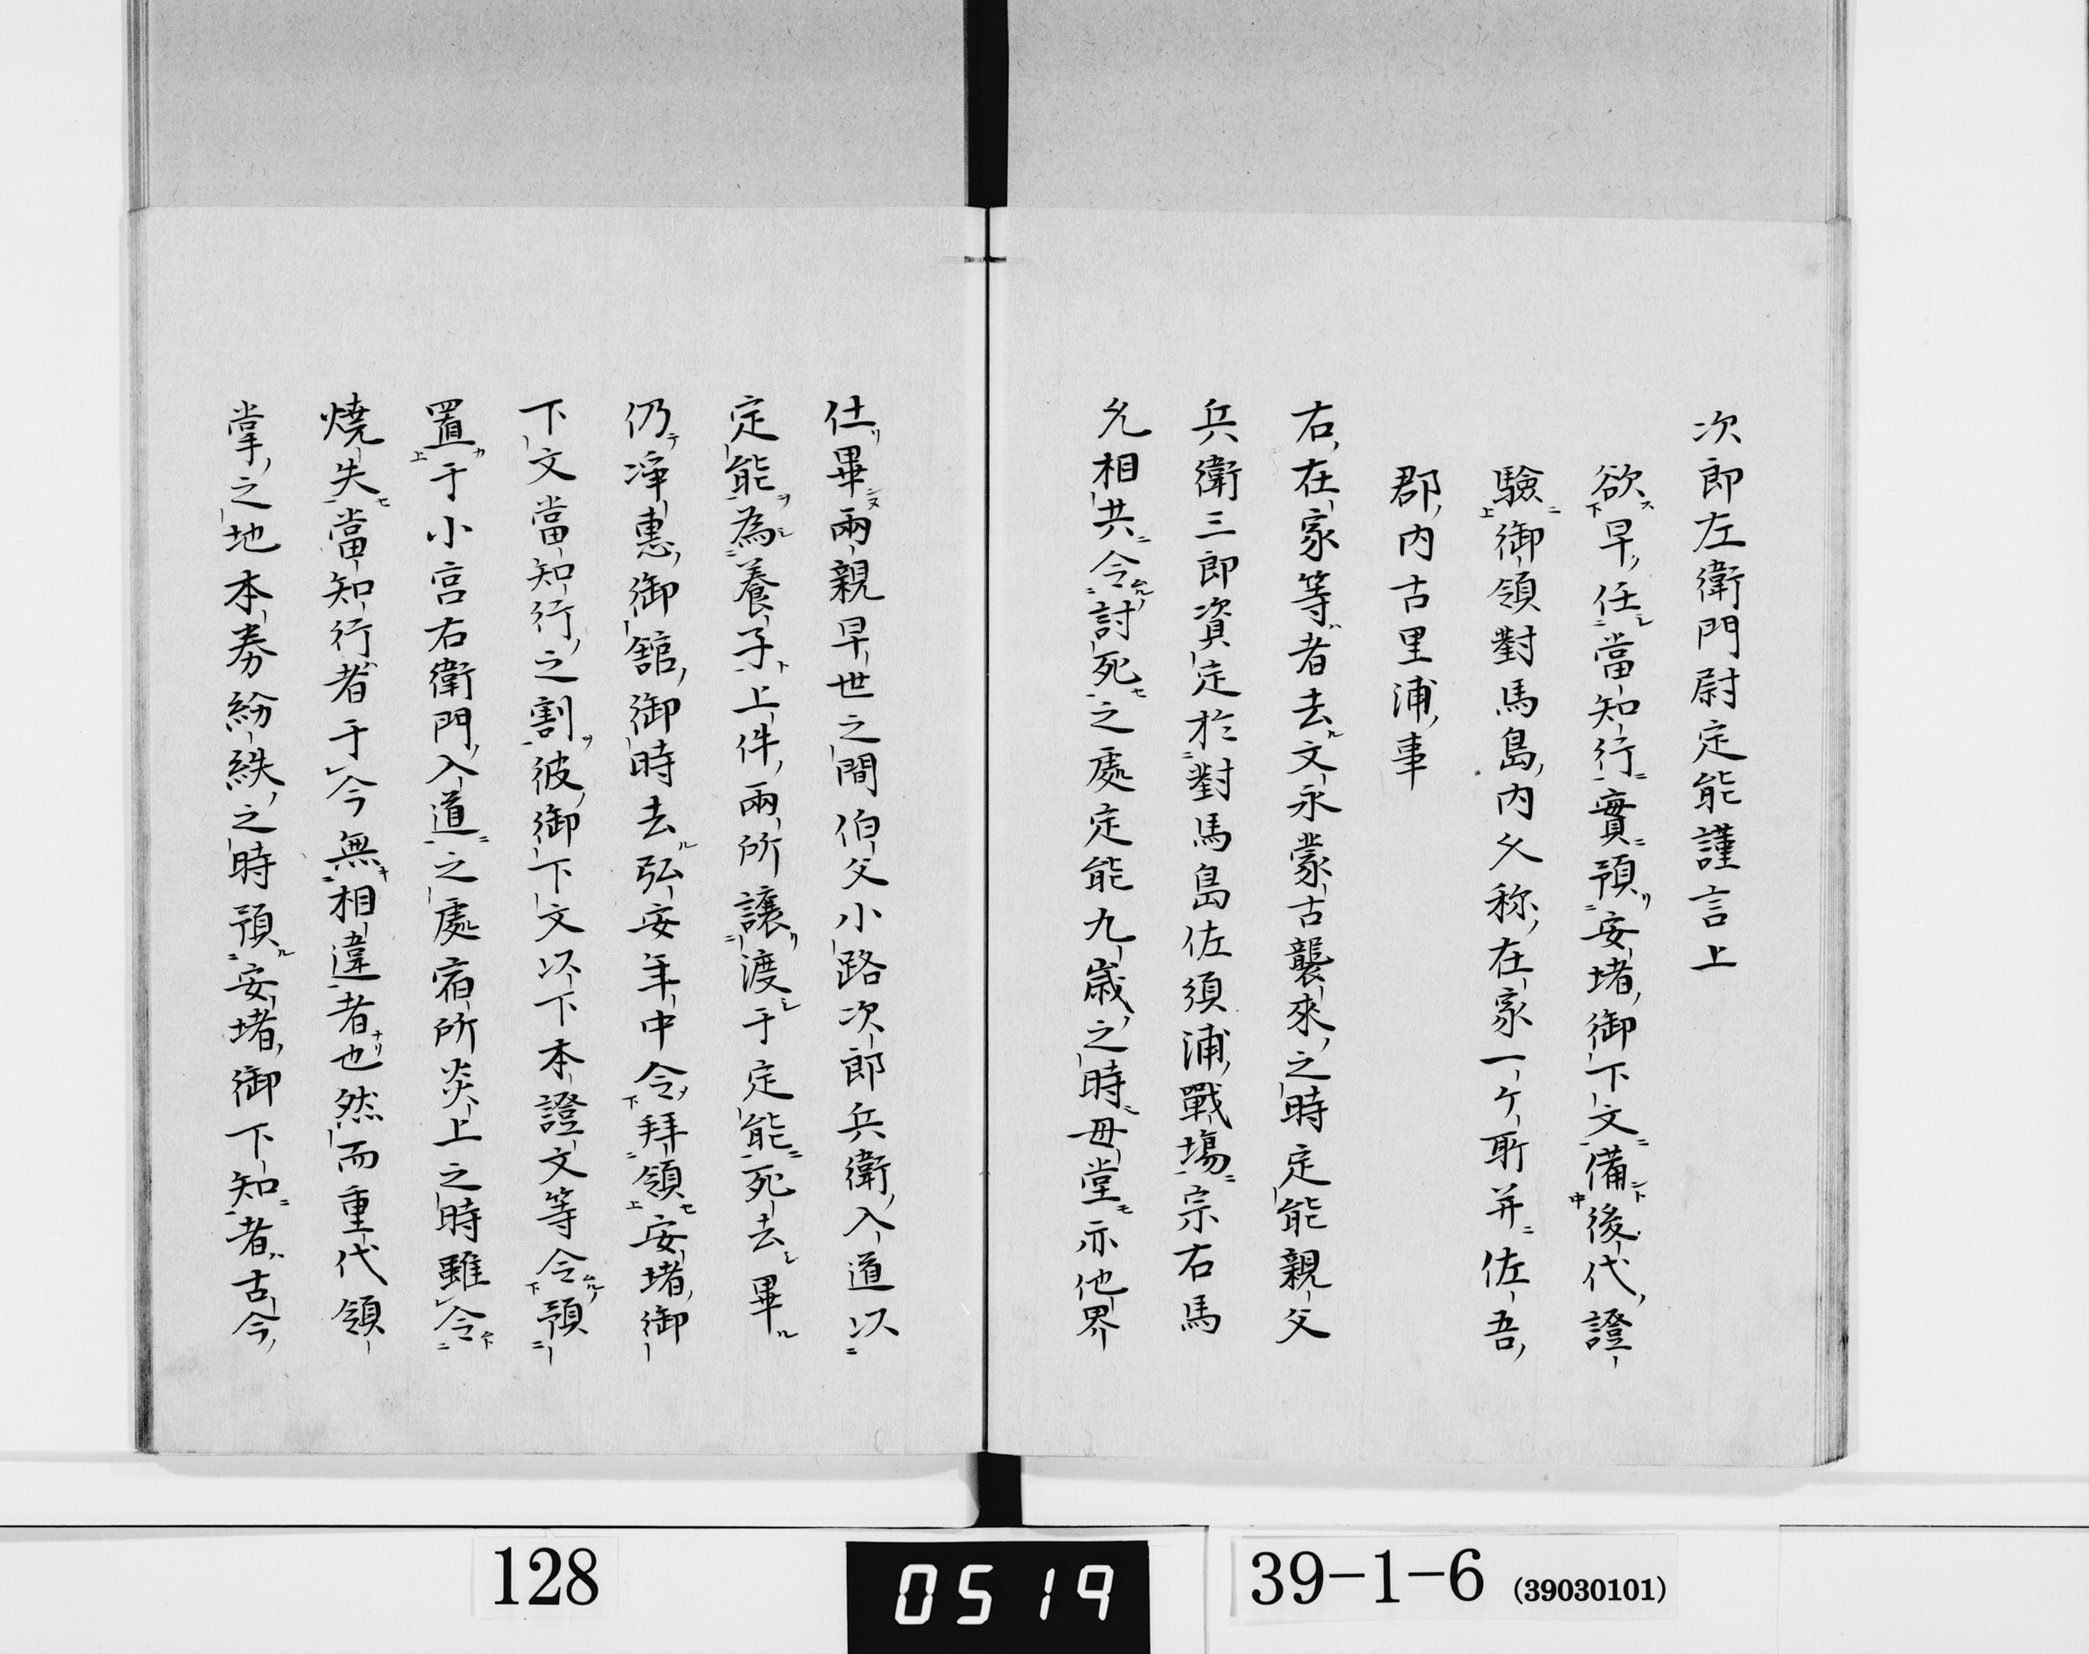 次郎左衛門尉定能謹言上
欲早任當知行實預安堵御下文備後代證
驗御領對馬島内久称在家一ケ所并佐吾
郡内古里浦事
右在家等者去文永蒙古襲來之時定能親父
兵衛三郎資定於對馬島佐須浦戰塲宗右馬
允相共令討死之處定能九歲之時母堂亦他界
仕畢兩親早世之間伯父小路次郎兵衛入道以
定能為養子上件兩所讓渡于定能死去畢
仍淨惠御舘御時去弘安年中令拜領安堵御
下文當知行之割彼御下文以下本證文等令預
置于小宮右衛門入道之處宿所炎上之時雖令
燒失當知行者于今無相違者也然而重代領
掌之地本券紛紩之時預安堵御下知者古今
128
0519
39-1-6 (39030101)